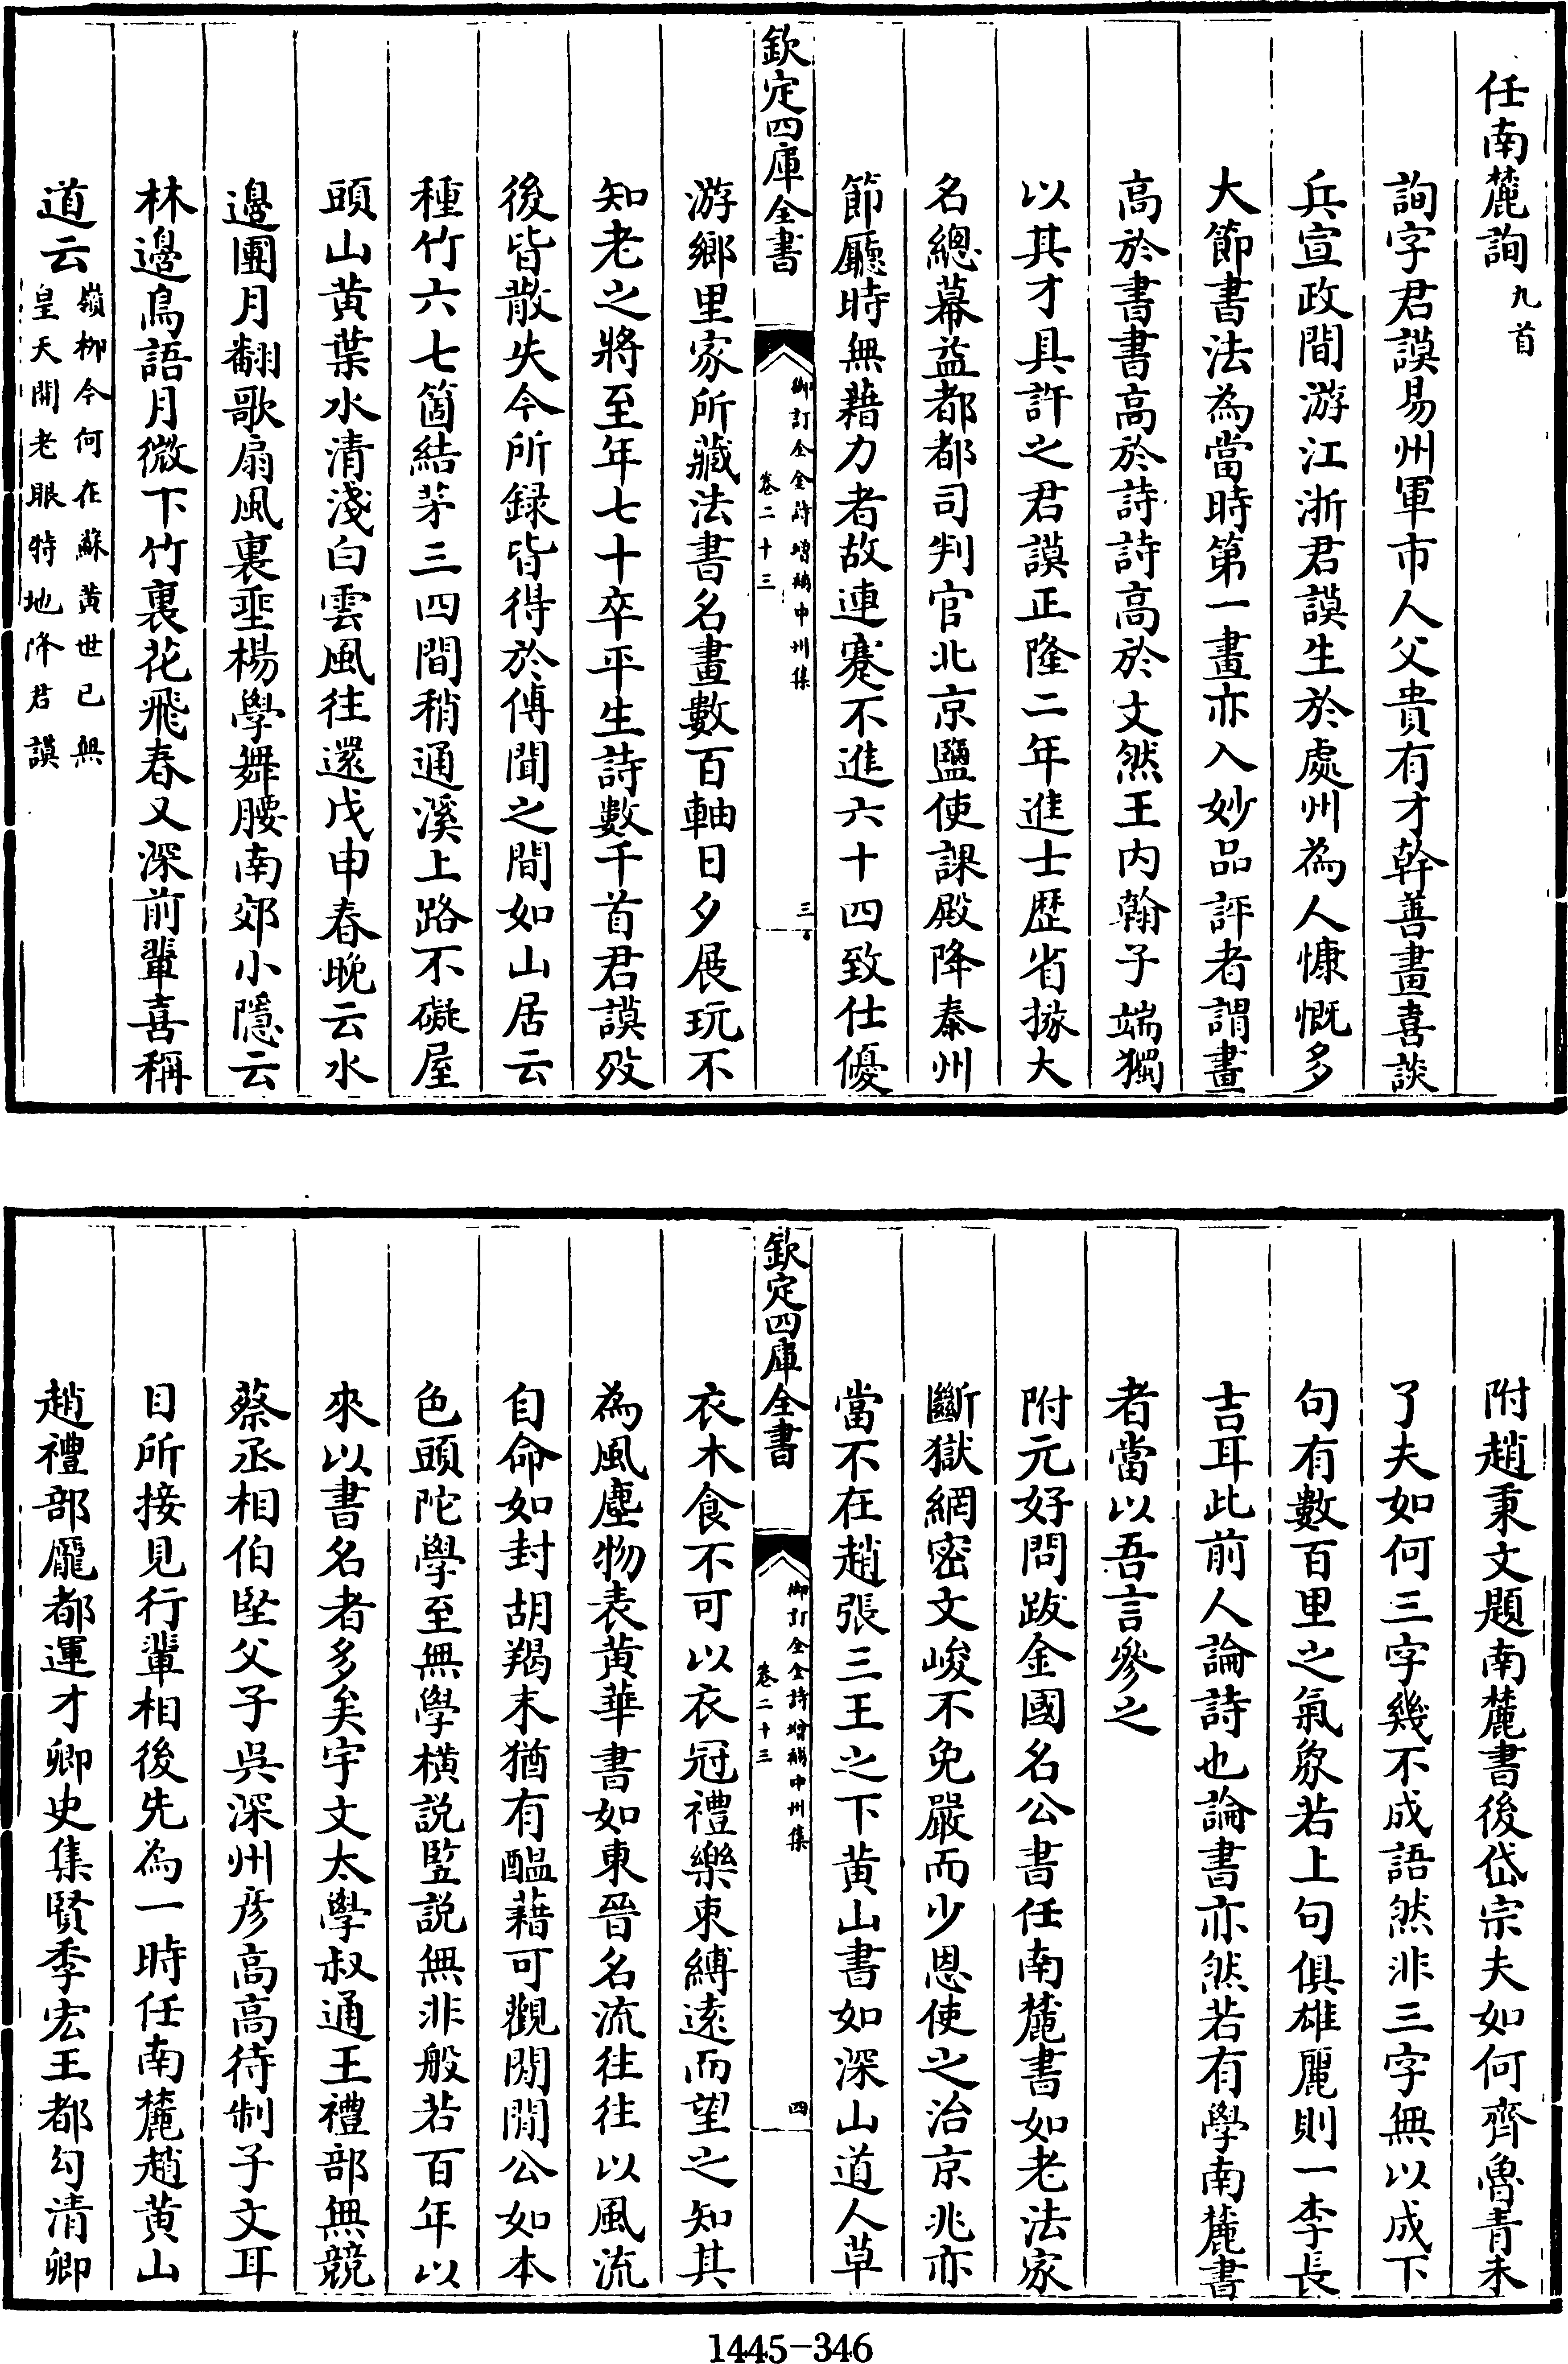 任南麓詢九首
詢字君謨易州軍市人父貴有才幹善畫喜談
兵宣政間游江浙君謨生於處州為人慷慨多
大節書法為當時第一畫亦入妙品評者謂畫
高於書書高於詩詩高於文然王内翰子端獨
以其才具許之君謨正隆二年進士歴省掾大
名總幕益都都司判官北京鹽使課殿降泰州
節廳時無藉力者故連蹇不進六十四致仕優
欽定四庫全書
御訂全金詩增補中州集
卷二十三
三
游鄉里家所藏法書名畫數百軸日夕展玩不
知老之將至年七十卒平生詩數千首君謨歿
後皆散失今所録皆得於傳聞之間如山居云
種竹六七箇結茅三四間稍通溪上路不礙屋
頭山黄葉水清淺白雲風往還戊申春晚云水
邊團月翻歌扇風裏垂楊學舞腰南郊小隱云
林邊鳥語月微下竹裏花飛春又深前輩喜稱
道云嶺栁今何在蘇黄世已無
皇天開老眼特地降君謨
附趙秉文題南麓書後岱宗夫如何齊魯青未
了夫如何三字幾不成語然非三字無以成下
句有數百里之氣象若上句俱雄麗則一李長
吉耳此前人論詩也論書亦然若有學南麓書
者當以吾言參之
附元好問跋金國名公書任南麓書如老法家
斷獄網密文峻不免嚴而少恩使之治京兆亦
當不在趙張三王之下黄山書如深山道人草
欽定四庫全書
御訂全金詩增補中州集
卷二十三
四
衣木食不可以衣冠禮樂束縛逺而望之知其
為風塵物表黄華書如東晉名流往往以風流
自命如封胡羯末猶有醖藉可觀閒閒公如本
色頭陀學至無學横説竪説無非般若百年以
來以書名者多矣宇文太學叔通王禮部無競
蔡丞相伯堅父子吳深州彦高高待制子文耳
目所接見行輩相後先為一時任南麓趙黄山
趙禮部龎都運才卿史集賢季宏王都勾清卿
1445-346